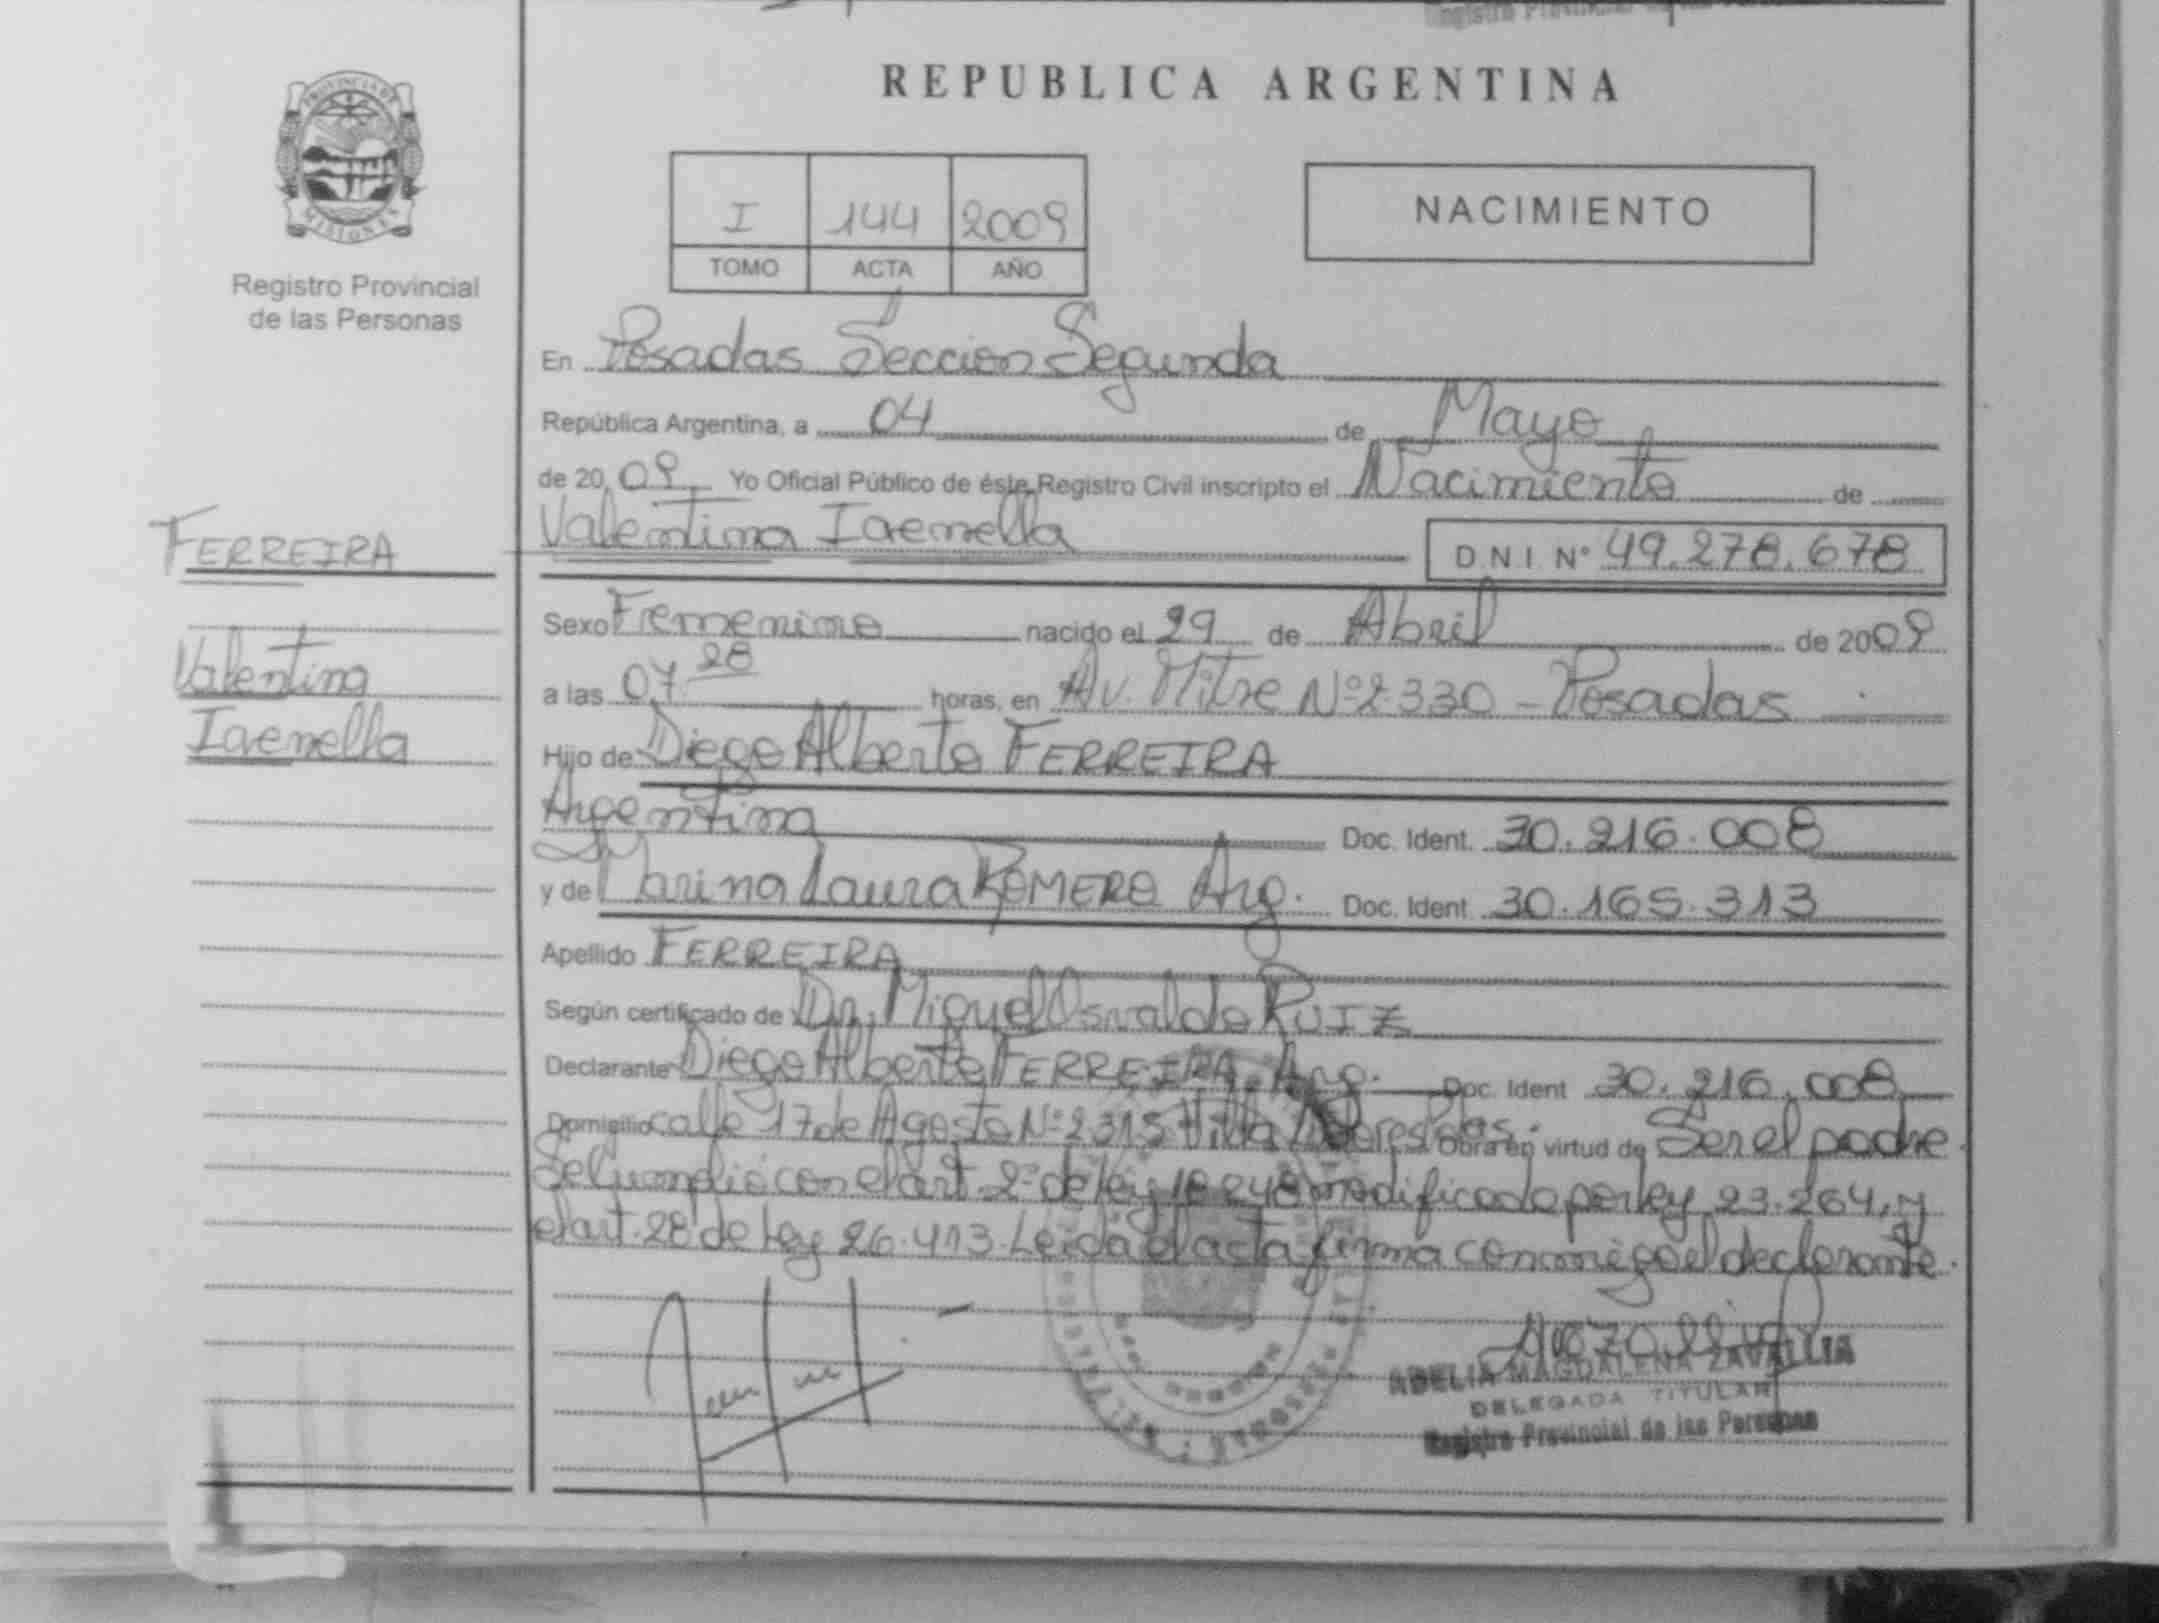 REPUBLICA ARGENTINA
PROVINCIA DE
MISIONES
Registro Provincial
de las Personas
I 144 2009
TOMO ACTA AÑO
NACIMIENTO
En Posadas Seccion Segunda
República Argentina, a 04 de Mayo
de 2009. Yo Oficial Público de éste Registro Civil inscripto el Nacimiento de
Valentina Iaenella
D.N.I. Nº 49.278.678
FERREIRA
Valentina
Iaenella
Sexo Femenino nacido el 29 de Abril de 2009
a las 07 28 horas, en Av. Mitre Nº 2330 - Posadas
Hijo de Diego Alberto FERREIRA
Argentina Doc. Ident. 30.216.008
y de Marina Laura ROMERO Arg. Doc. Ident. 30.165.313
Apellido FERREIRA
Según certificado de Dr. Miguel Osvaldo RUIZ
Declarante Diego Alberto FERREIRA, Arg. Doc. Ident 30.216.008
Domicilio calle 17 de Agosto Nº 2315 Villa Obra en virtud de Ser el padre.
Se cumplió con el art 2º de ley 18248 modificado por ley 23.264, y
el art. 28 de Ley 26.413. Leida el acta firma conmigo el declarante.
ADELIA MAGDALENA
DELEGADA TITULAR
Registro Provincial de las Personas